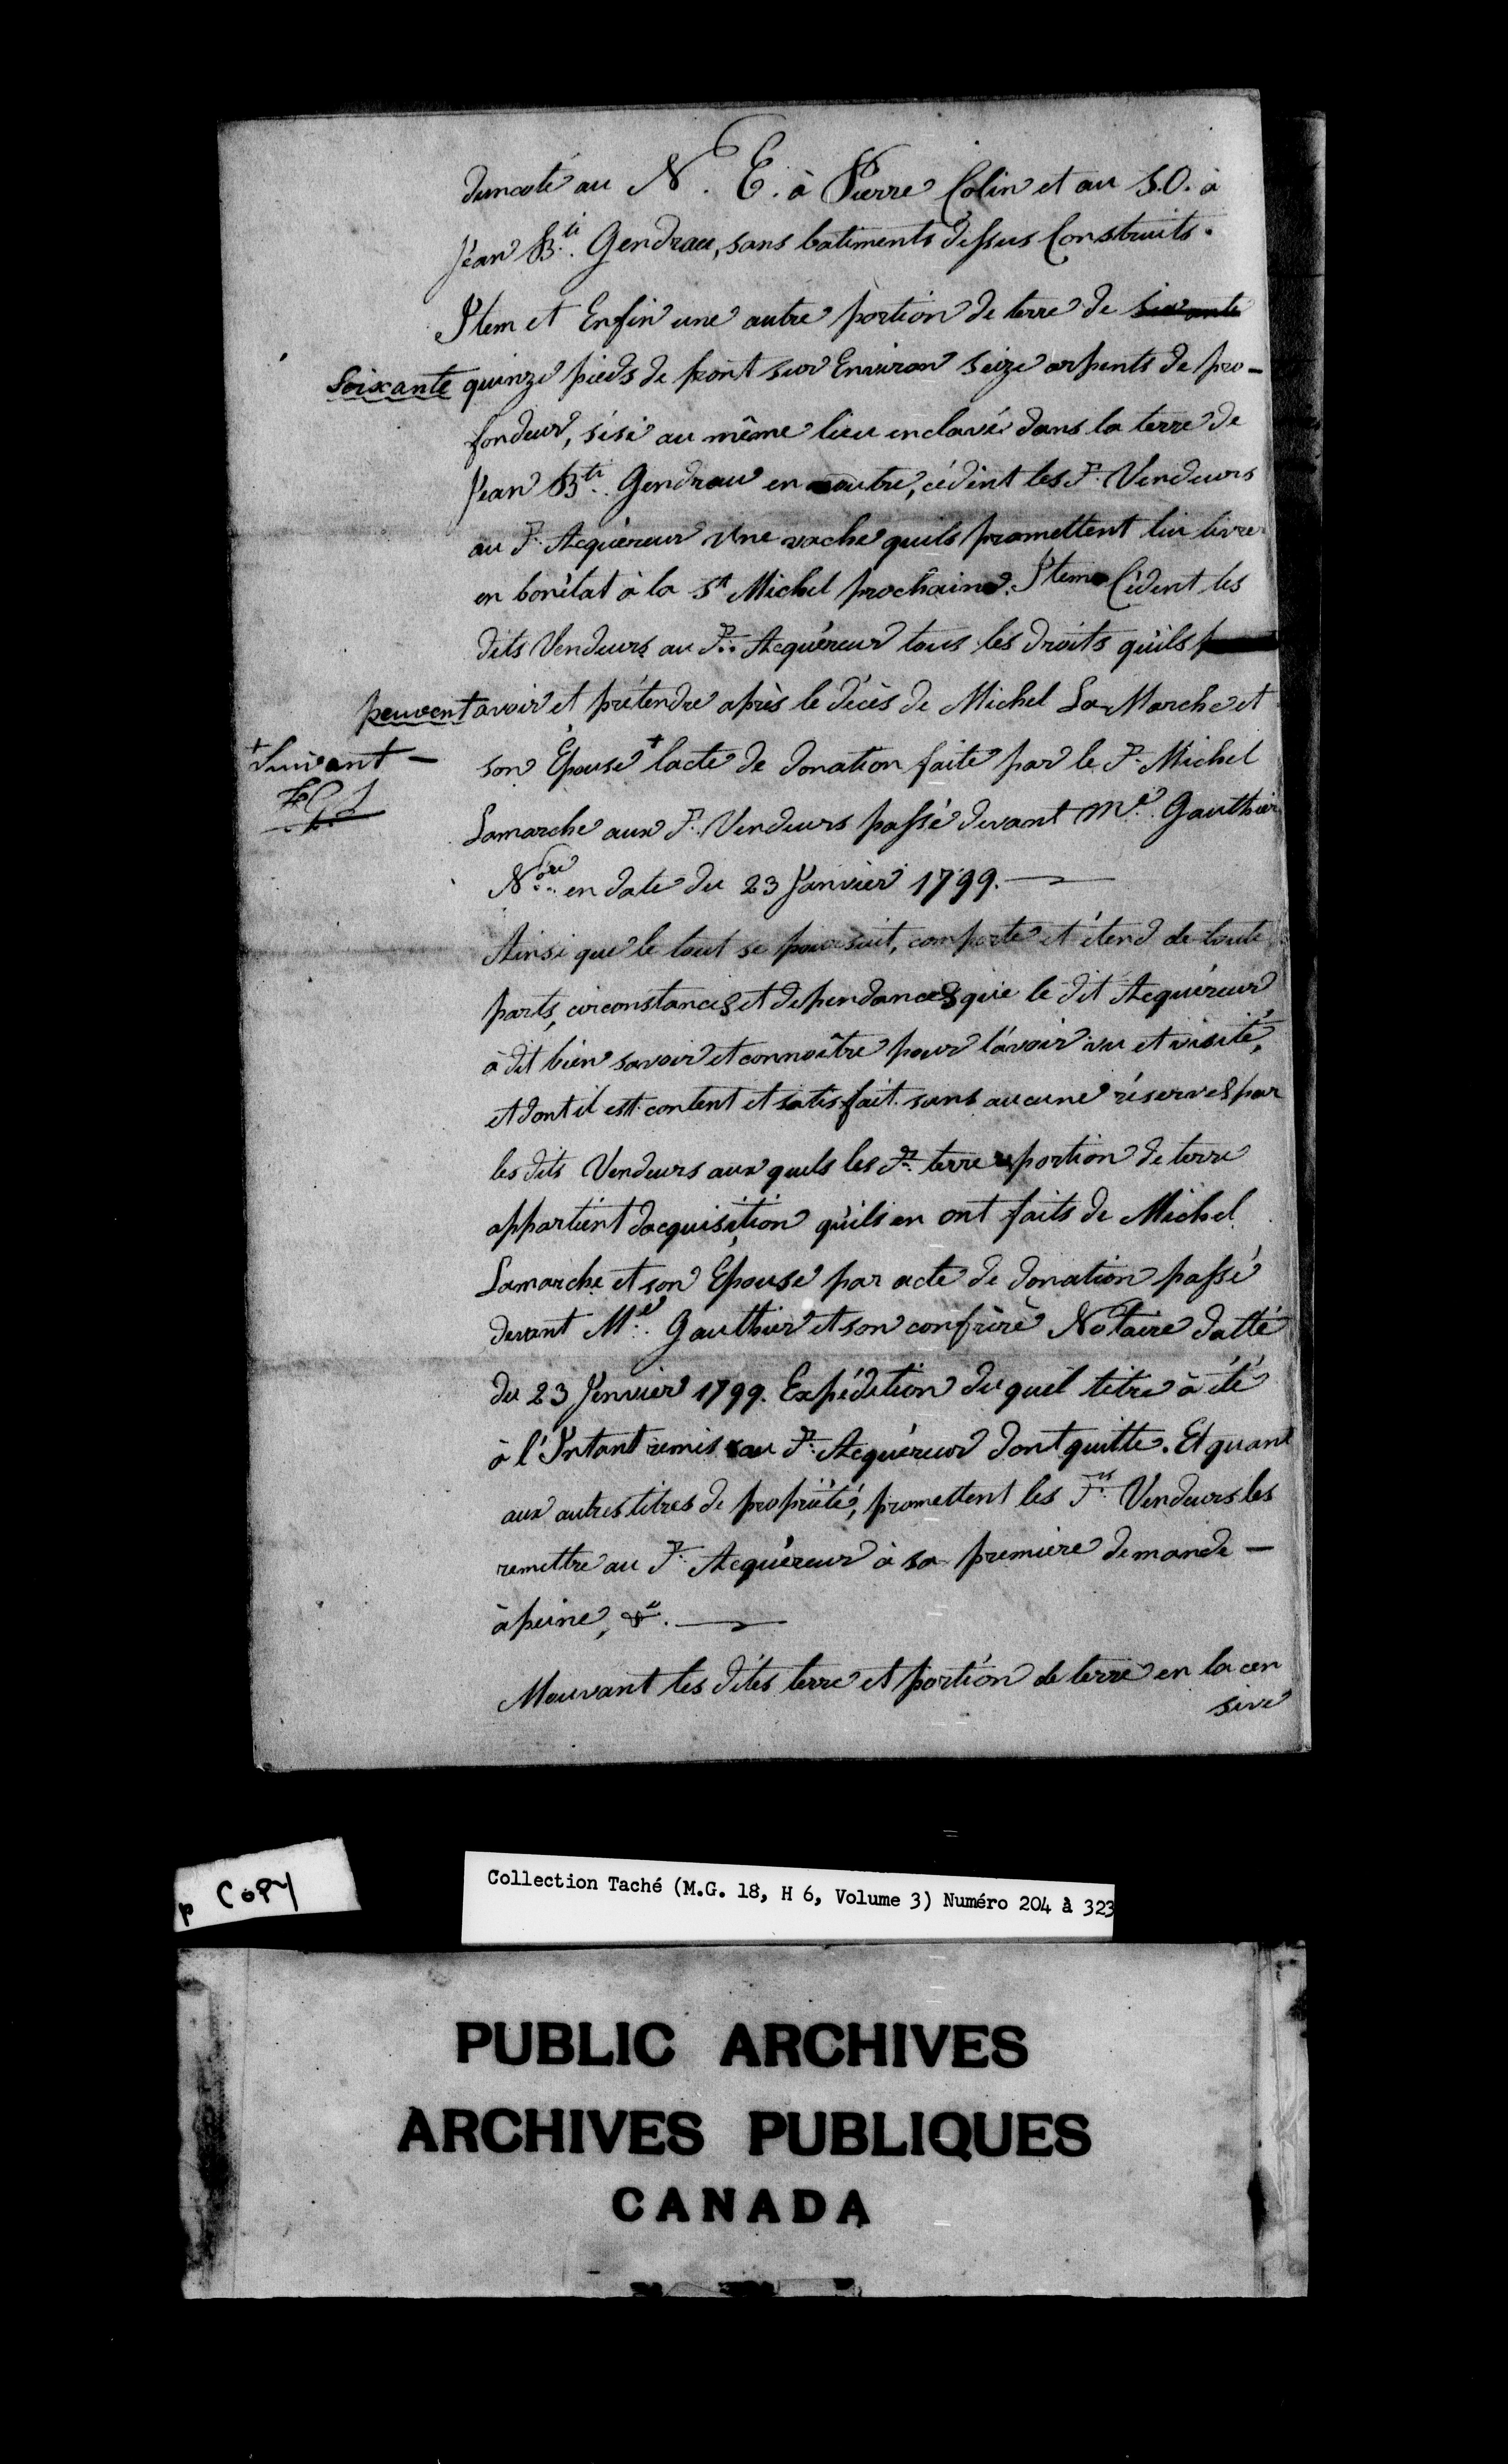 duncoté au N. E. à Pierre Colin et au S.O. à
Jean Bte. Gendrau, sans batiments dessus Construits.
Item et Enfin une autre portion de terre de soixante
Soixante quinze pieds de front sur Environ seize arpents de pro-
fondeur, sise au même lieu enclavé dans la terre de
Jean Bte. Gendrau en outre, cédent les d. Vendeurs
au d. Acquéreur Une vache quils promettent lui livrer
en bon état à la St Michel prochaine. Item Cédent les
dits Vendeurs au d. Acquéreur tous les droits quils
peuvent avoir et prétendre après le décès de Michel La Marche et
+ Suivant —
son Epouse + lacte de donation faite par le d. Michel
Lamarche aux d. Vendeurs passé devant Me. Gauthier
Nore en date du 23 Janvier 1799. —
Ainsi que le tout se poursuit, comporte et étend de toute
parts, circonstances et dependances que le dit Acquéreur
à dit bien savoir et connoître pour l'avoir vu et visité,
et dont il est content et satisfait sans aucune réserves par
les dits Vendeurs aux quels les d. terre portion de terre
appartient dacquisition qu'ils en ont faits de Michel
Lamarche et son Epouse par acte de donation passé
devant Me. Gauthier et son confrère Notaire datté
du 23 Janvier 1799. Expédition du quel titre à été
à l'Intant remis au d. Acquéreur dont quitte. Et quant
aux autres titres de propriété, promettent les ds. Vendeurs les
remettre au d. Acquéreur à sa premiere demande —
à peine, &c. —
Mouvant les dites terre et portion de terre en la cen
sive
p COPY
Collection Taché (M.G. 18, H 6, Volume 3) Numéro 204 à 323
PUBLIC ARCHIVES
ARCHIVES PUBLIQUES
CANADA